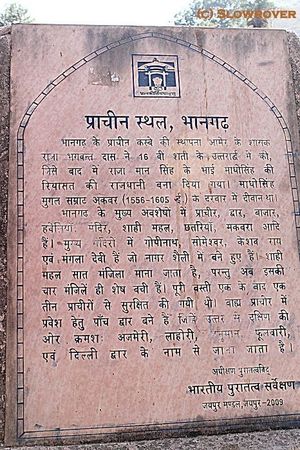 (C) SLOWROVER
प्राचीन स्थल, भानगढ
भानगढ के प्राचीन कस्बे की स्थापना आमेर के शासक
राजा भगवन्त दास ने 16 वीं शती के उत्तरार्द्ध में की,
जिसे बाद में राजा मान सिंह के भाई माधोसिंह की
रियासत की राजधानी बना दिया गया। माधोसिंह
मुगल सम्राट अकबर (1556-1605 ई.) के दरबार में दीवान था।
भानगढ के मुख्य अवशेषों में प्राचीर, द्वार, बाजार,
हवेलियां, मंदिर, शाही महल, छतरियां, मकबरा आदि
हैं। मुख्य मंदिरों में गोपीनाथ, सोमेश्वर, केशव राय
एवं मंगला देवी हैं जो नागर शैली में बने हुए हैं। शाही
महल सात मंजिला माना जाता है, परन्तु अब इसकी
चार मंजिलें ही शेष बची हैं। पूरी बस्ती एक के बाद एक
तीन प्राचीरों से सुरक्षित की गयी थी। बाह्य प्राचीर में
प्रवेश हेतु पाँच द्वार बने हैं जिन्हें उत्तर से दक्षिण की
ओर क्रमशः अजमेरी, लाहोरी, हनुमान, फूलबारी,
एवं दिल्ली द्वार के नाम से जाना जाता है।
अधीक्षण पुरातत्वविद्
भारतीय पुरातत्व सर्वेक्षण
जयपुर मण्डल, जयपुर-2009